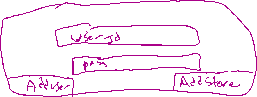 user id
pass
Adduser Addstore